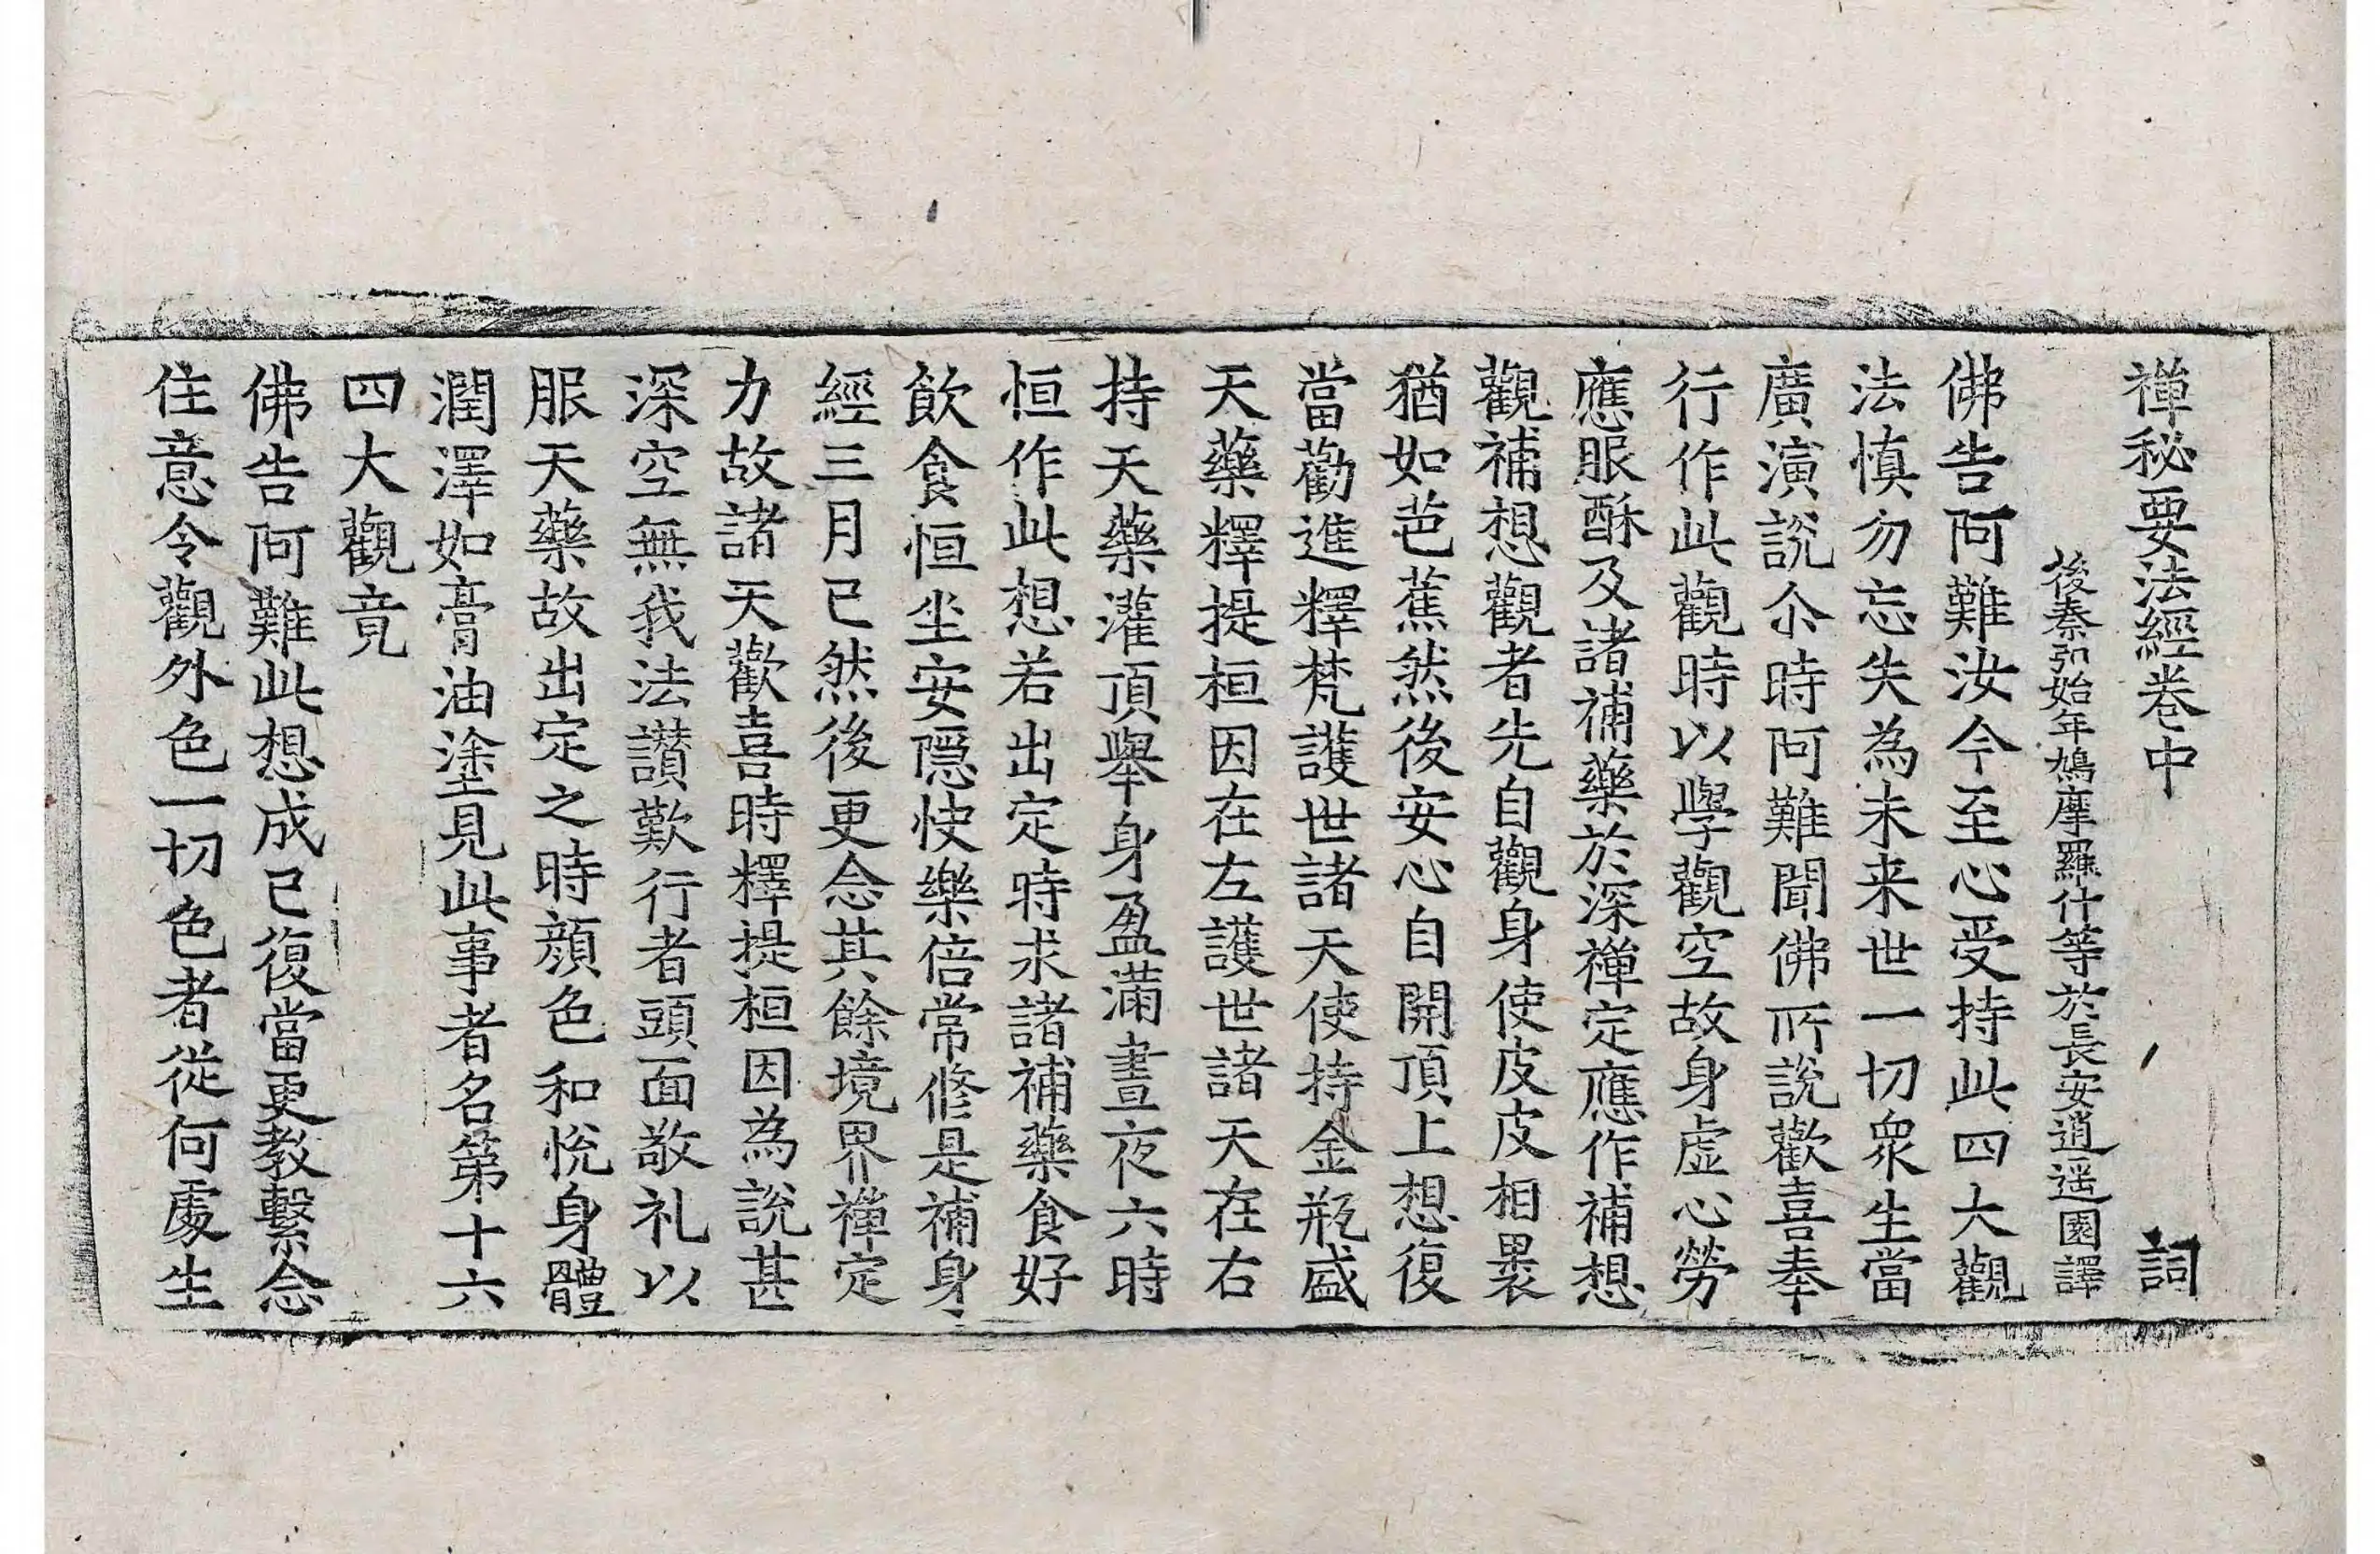 禅秘要法經卷中 詞
後秦弘始年鳩摩羅什等於長安逍遥園譯
佛告阿難汝今至心受持此四大觀
法慎勿忘失為未来世一切衆生當
廣演說尒時阿難聞佛所說歡喜奉
行作此觀時以學觀空故身虛心勞
應服酥及諸補藥於深禅定應作補想
觀補想觀者先自觀身使皮皮相褁
猶如芭蕉然後安心自開頂上想復
當勸進釋梵護世諸天使持金瓶盛
天藥釋提桓因在左護世諸天在右
持天藥灌頂舉身盈滿晝夜六時
恒作此想若出定時求諸補藥食好
飲食恒坐安隱快樂倍常修是補身
經三月已然後更念其餘境界禅定
力故諸天歡喜時釋提桓因為說甚
深空無我法讃歎行者頭面敬礼以
服天藥故出定之時顔色和悅身體
潤澤如膏油塗見此事者名第十六
四大觀竟
佛告阿難此想成已復當更教繫念
住意令觀外色一切色者從何處生